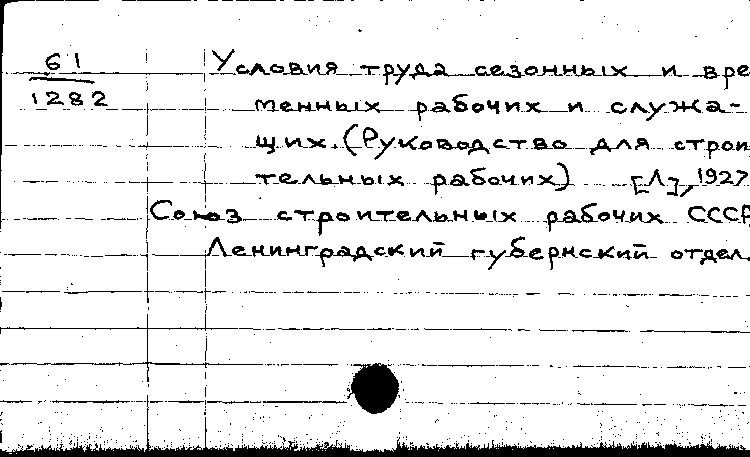 61
1282
Условия труда сезонных и вре
менных рабочих и служа-
щих. (Руководство для строи
тельных рабочих) [Л], 1927
Союз строительных рабочих СССР
Ленинградский губернский отдел.